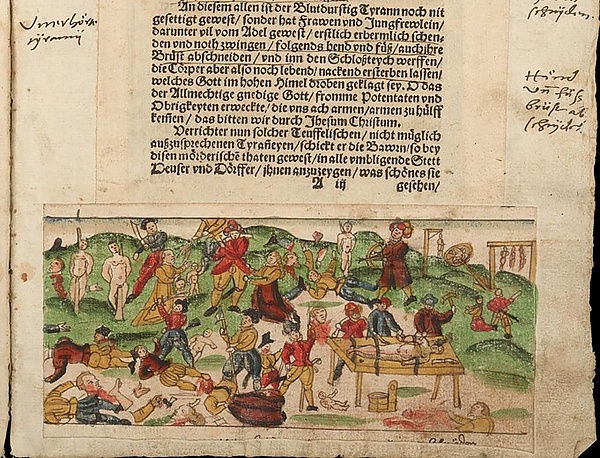 An disem allen ist der Blutdurstig Tyrann noch nit
gesettigt gewest / sonder hat Frawen vnd Jungfrewlein /
darunter vil vom Adel gewest / erstlich erbermlich schen-
den vnd noth zwingen / folgends hend vnd füß / auch ihre
Brüst abschneiden / vnd inn den Schloßteych werffen /
die Cörper aber also noch lebend / nackend ersterben lassen /
welches Gott im hohen Himel droben geklagt sey. O das
der Allmechtig gnedige Gott / fromme Potentaten vnd
Obrigkeyten erweckte / die vns arm armen / armen zu hülff
kemen / das bitten wir durch Jhesum Christum.
Verrichter nun solcher Teuffelischen / nicht müglich
außzusprechenen Tyraneyen / schickt er die Bawrn / so bey
disen mörderischē thaten gewest / in alle vmbligende Stett
Heuser vnd Dörffer / ihnen anzuzeygen / was schönes sie
A iij gesehen /
Hend
vñ füß
brüst ab